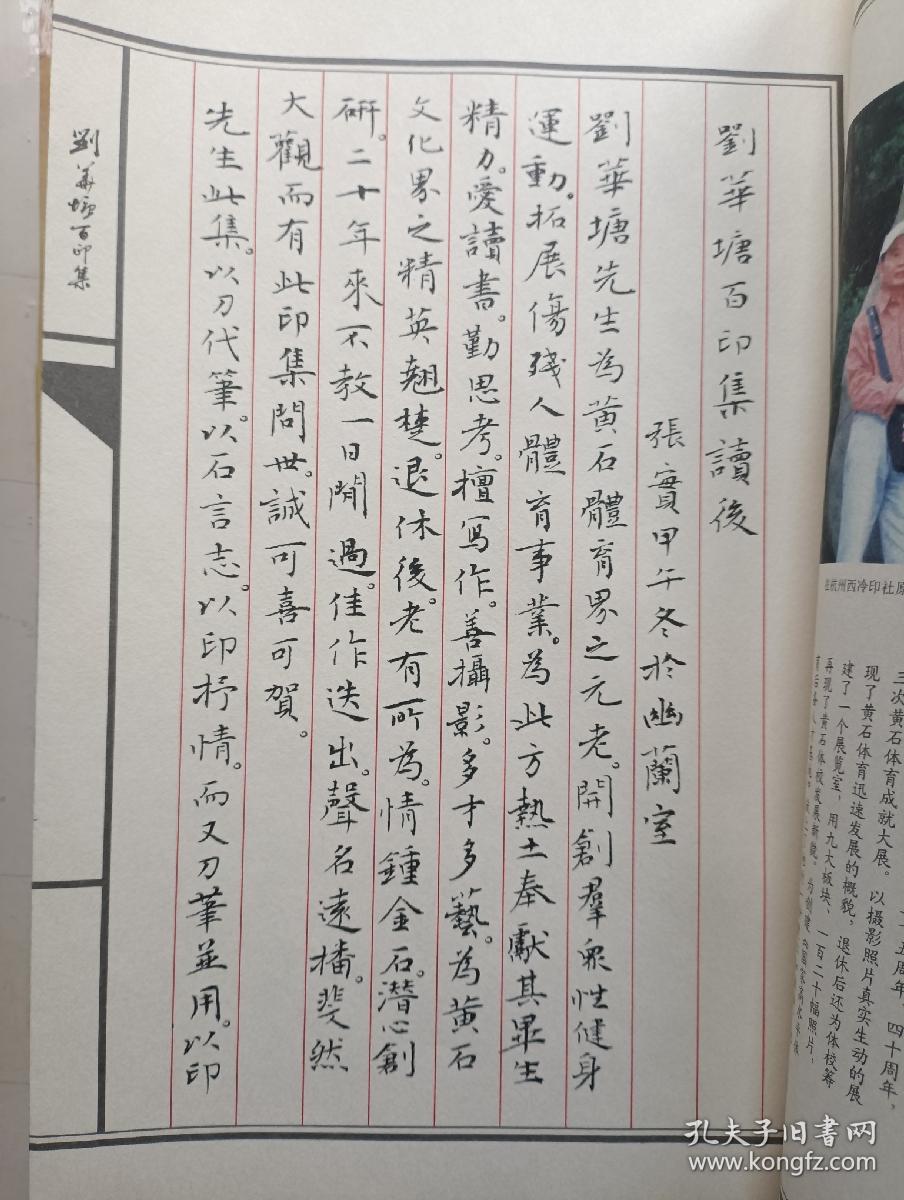 劉華塘百印集讀後
張實甲午冬於幽蘭室
劉華塘先生為黃石體育界之元老。開創羣眾性健身
運動。拓展傷殘人體育事業。為此方熱土奉獻其畢生
精力。愛讀書。勤思考。擅寫作。善攝影。多才多藝。為黃石
文化界之精英翹楚。退休後。老有所為。情鍾金石。潛心創
研。二十年來不教一日閒過。佳作迭出。聲名遠播。斐然
大觀而有此印集問世。誠可喜可賀。
先生此集。以刀代筆。以石言志。以印抒情。而又刀筆並用。以印
劉華塘百印集
在杭州西冷印社原
五周年、四十周年，
三次黄石体育成就大展。以摄影照片真实生动的展
现了黄石体育迅速发展的概貌，退休后还为体校筹
建了一个展览室，用九大板块、一百二十幅照片，
再现了黄石体校发展新貌。为创建
孔夫子旧书网
www.kongfz.com